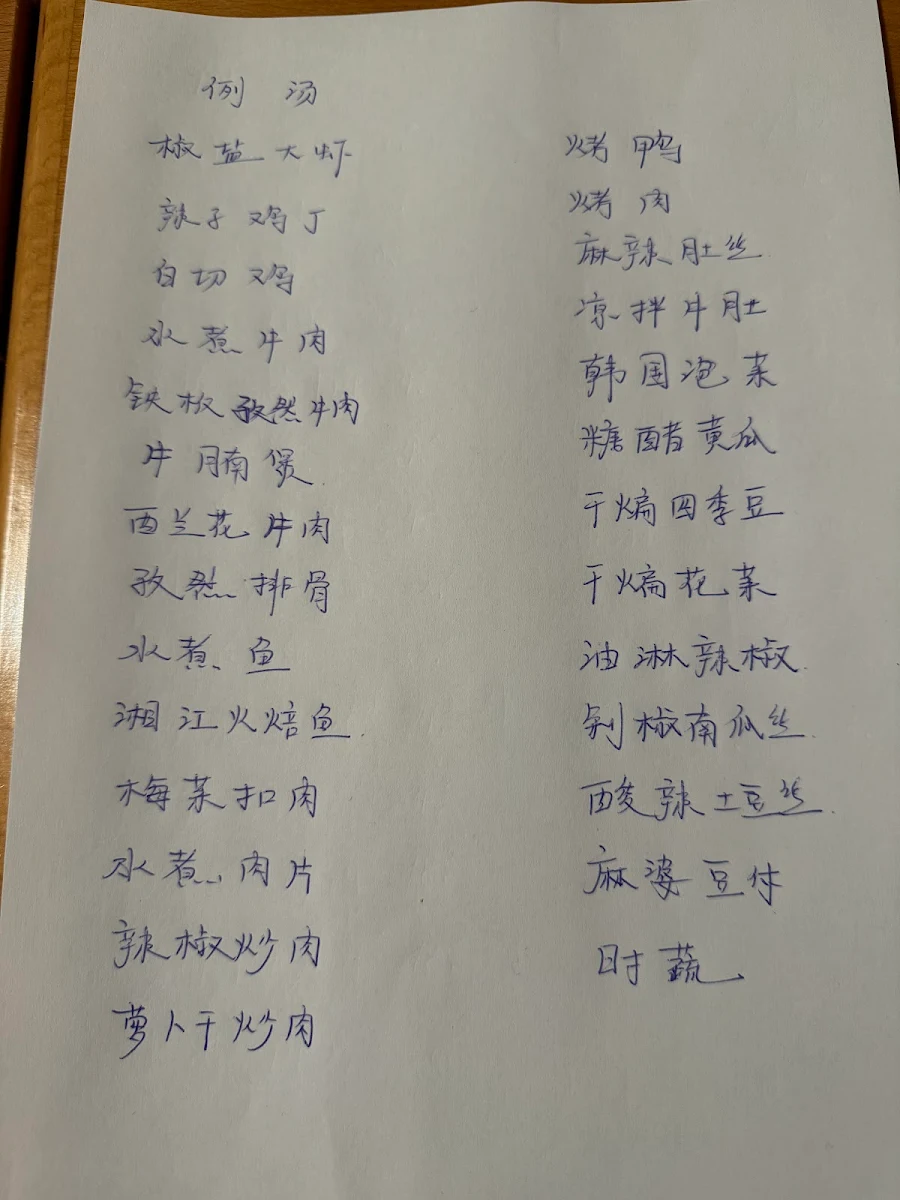 例汤
椒盐大虾
辣子鸡丁
白切鸡
水煮牛肉
铁板孜然牛肉
牛腩煲
西兰花牛肉
孜然排骨
水煮鱼
湘江火焙鱼
梅菜扣肉
水煮肉片
辣椒炒肉
萝卜干炒肉
烤鸭
烤肉
麻辣肚丝
凉拌牛肚
韩国泡菜
糖醋黄瓜
干煸四季豆
干煸花菜
油淋辣椒
剁椒南瓜丝
酸辣土豆丝
麻婆豆付
时蔬